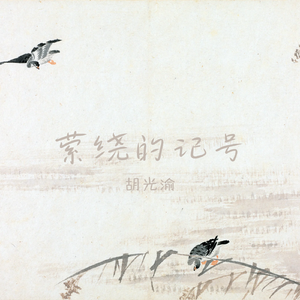 萦绕的记号
胡光渝